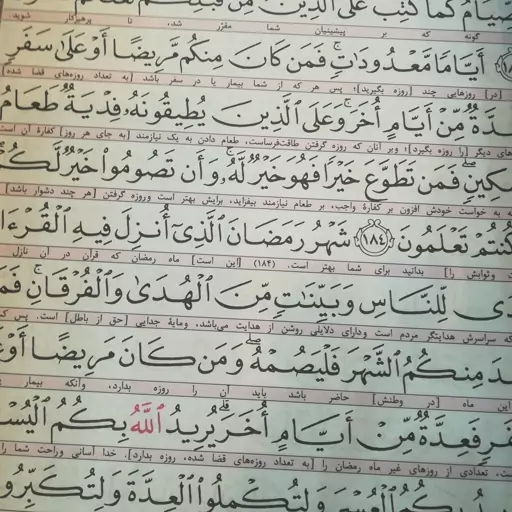 صيام كما كتب على الذين من قبلكم
گونه که بر پیشینیان شما مقرّر شد، تا پرهیزکار شوید.
أَيَّامًا مَّعْدُودَاتٍ ۚ فَمَن كَانَ مِنكُم مَّرِيضًا أَوْ عَلَىٰ سَفَرٍ
[در] روزهایی چند [روزه بگیرید]؛ پس هر که از شما بیمار یا در سفر باشد [به تعداد روزه‌های قضا شده]
دَّةٌ مِّنْ أَيَّامٍ أُخَرَ ۚ وَعَلَى الَّذِينَ يُطِيقُونَهُۥ فِدْيَةٌ طَعَامُ
های دیگر [را روزه بگیرد]؛ وبر آنان که روزه گرفتن طاقت‌فرساست، طعام دادن به یک نیازمند [به جای هر روز] کفارهٔ آن است
سْكِينٍ ۖ فَمَن تَطَوَّعَ خَيْرًا فَهُوَ خَيْرٌ لَّهُۥ ۚ وَأَن تَصُومُوا۟ خَيْرٌ لَّكُمْ
به خواست خودش افزون بر کفارهٔ واجب، بر طعام نیازمند بیفزاید، برایش بهتر است وروزه گرفتن [هر چند دشوار باشد]
كُنتُمْ تَعْلَمُونَ ﴿١٨٤﴾ شَهْرُ رَمَضَانَ الَّذِىٓ أُنزِلَ فِيهِ الْقُرْءَا
وثوابش را] بدانید برای شما بهتر است. (۱۸۴) [این است] ماه رمضان که قرآن در آن نازل
دًى لِّلنَّاسِ وَبَيِّنَاتٍ مِّنَ الْهُدَىٰ وَالْفُرْقَانِ ۚ فَمَ
که سراسرش هدایتگر مردم است ودارای دلایلی روشن از هدایت می‌باشد، ومایهٔ جدایی [حق از باطل] است. پس که
دَ مِنكُمُ الشَّهْرَ فَلْيَصُمْهُ ۖ وَمَن كَانَ مَرِيضًا أَوْ عَ
این ماه [در وطنش] حاضر باشد باید آن را روزه بدارد، وآنکه بیمار
فَرٍ فَعِدَّةٌ مِّنْ أَيَّامٍ أُخَرَ ۗ يُرِيدُ اللَّهُ بِكُمُ الْيُسْ
ست، تعدادی از روزهای غیر ماه رمضان را [به تعداد روزه‌های قضا شده، روزه بدارد]. خدا آسانی وراحت شما را
يدُ بِكُمُ الْعُسْرَ وَلِتُكْمِلُوا۟ الْعِدَّةَ وَلِتُكَبِّرُو